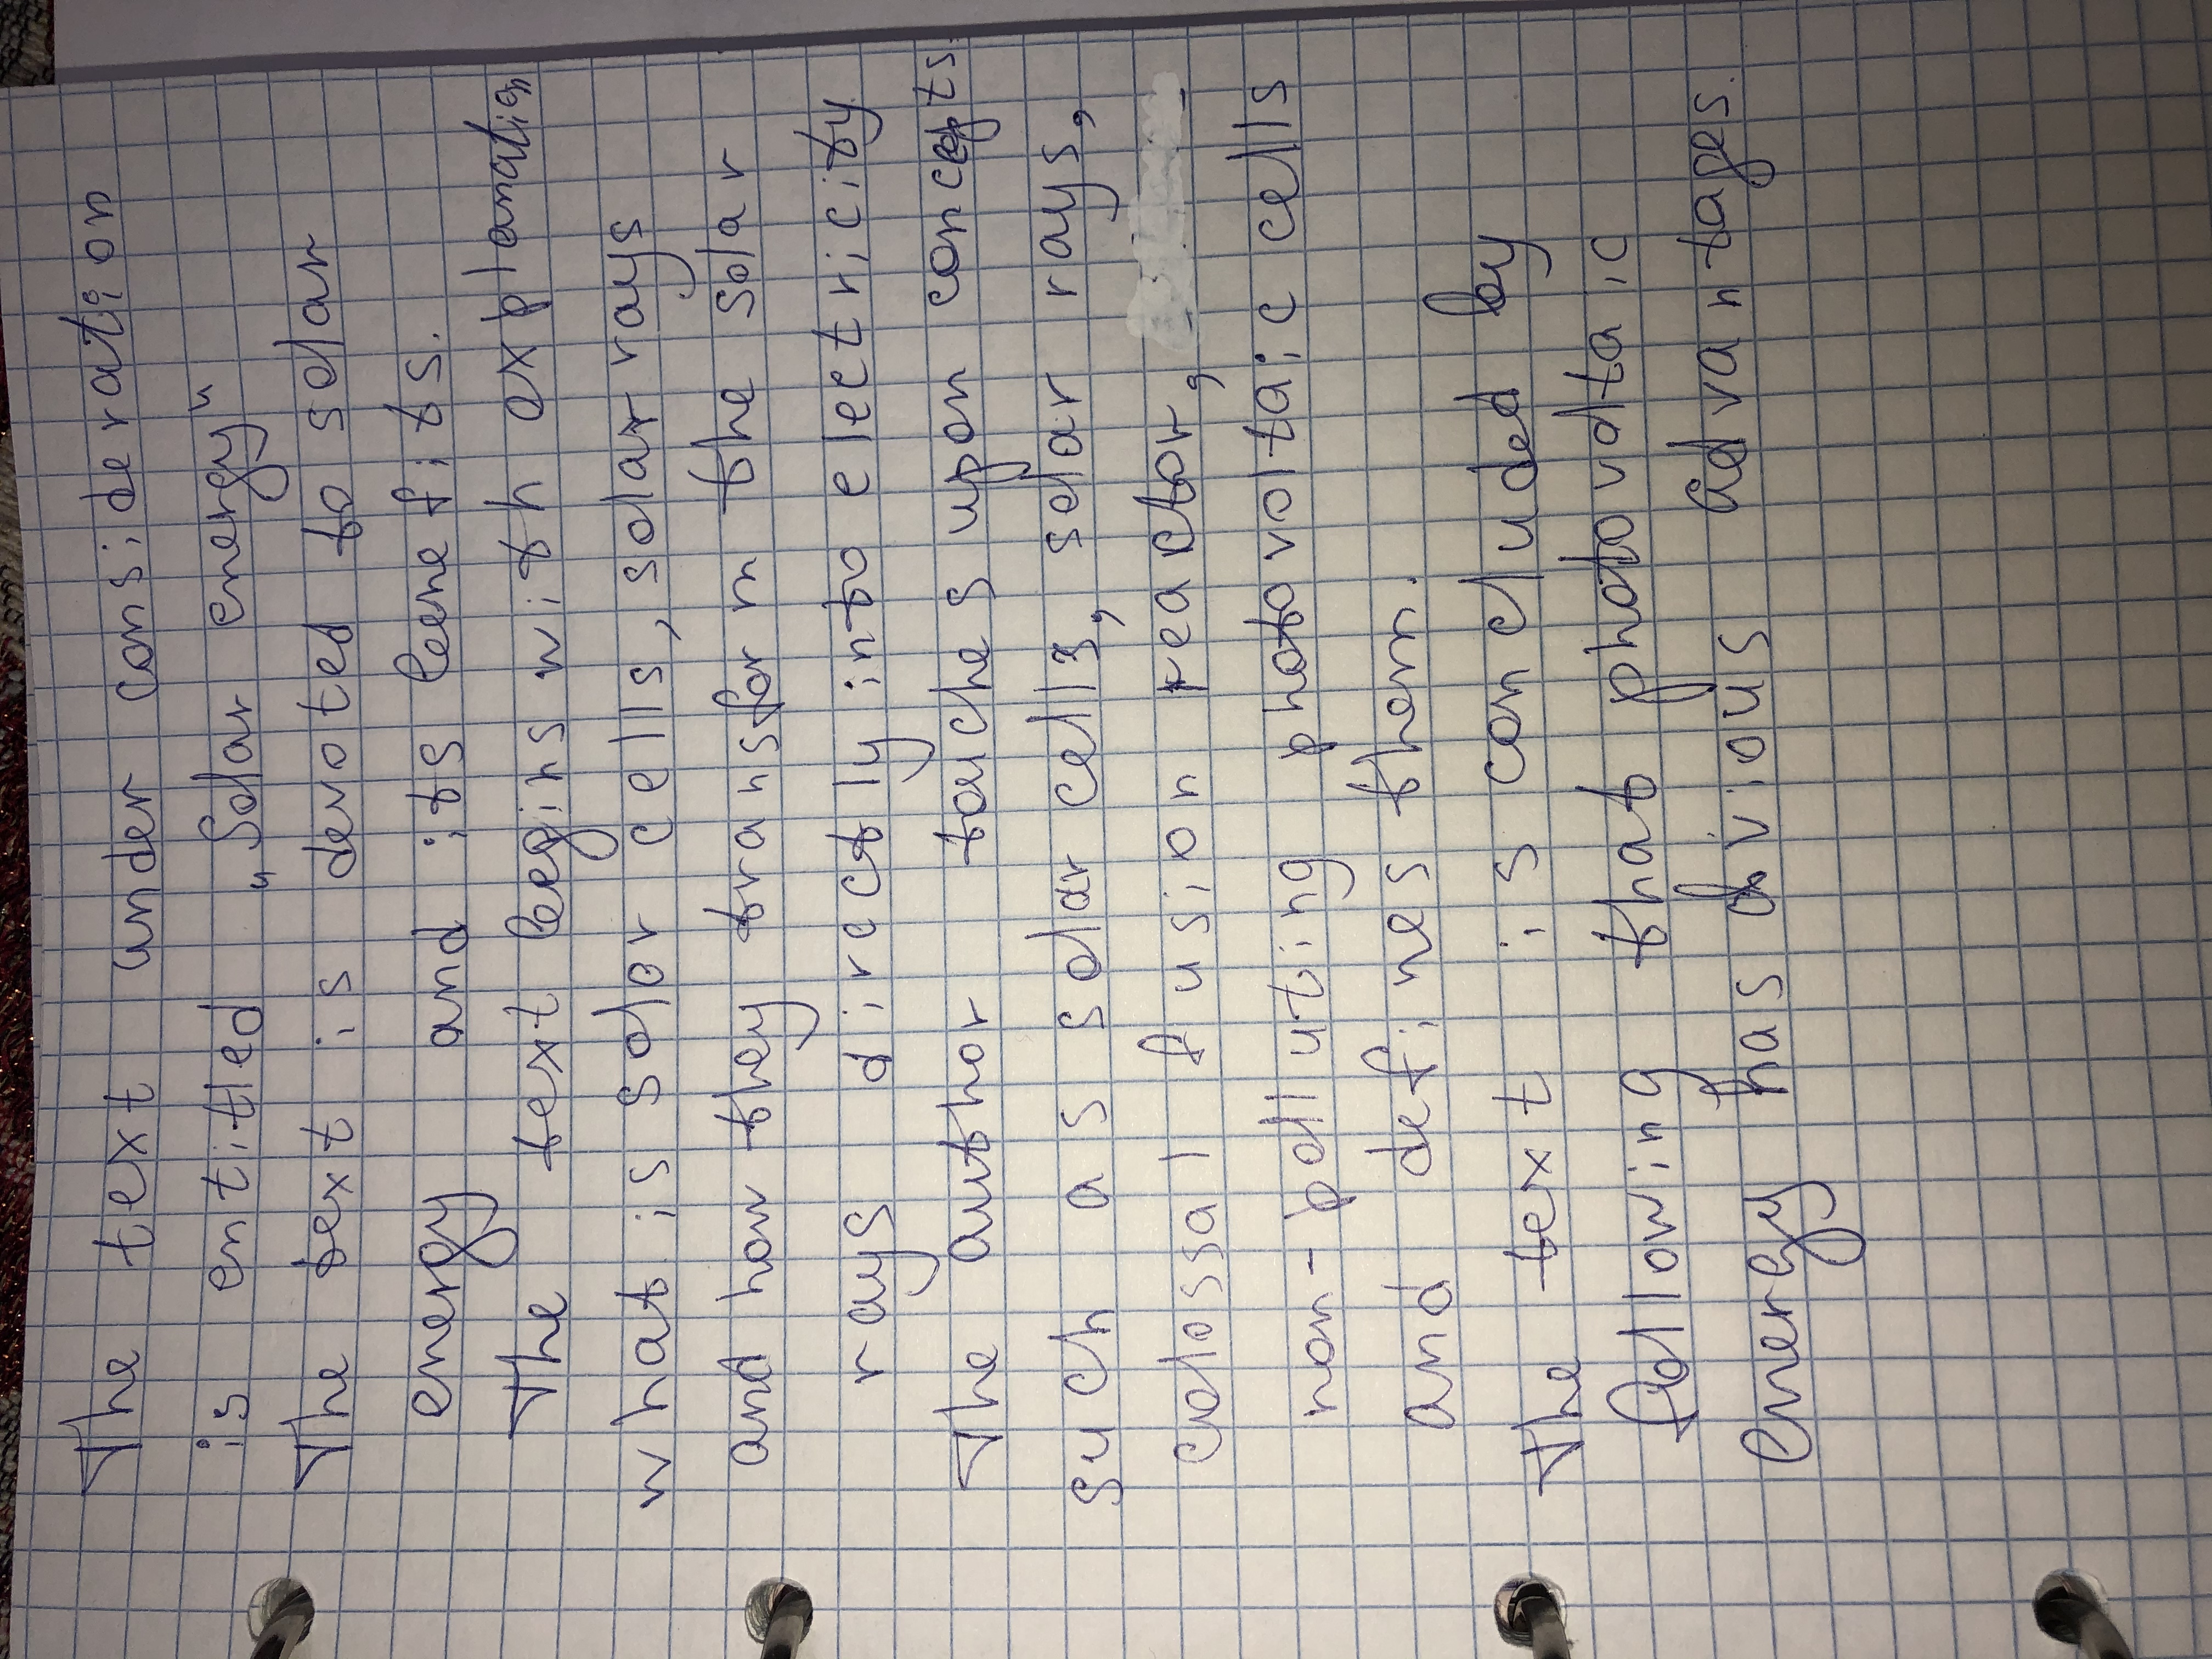 The text under consideration
is entitled "Solar energy"
The text is devoted to solar
energy and its benefits.
The text begins with explanation
what is solar cells, solar rays
and how they transform the solar
rays directly into electricity.
The author touches upon concepts
such as solar cells, solar rays,
colossal fusion reactor,
non-polluting photovoltaic cells
and defines them.
The text is concluded by
following that photovoltaic
energy has obvious advantages.